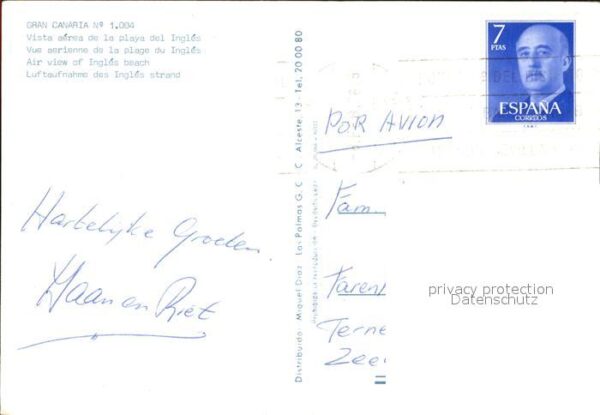 GRAN CANARIA Nº 1.004
Vista aérea de la playa del Inglés
Vue aerienne de la plage du Inglés
Air view of Inglés beach
Luftaufnahme des Inglés strand
Hartelijke Groeten.
Distribuido: Miguel Diaz - Las Palmas G. C. - C. Alceste, 13 - Tel. 20 00 80
7
PTAS
ESPAÑA
CORREOS
POR AVION
Fam.
privacy protection
Datenschutz
Terne
Zee